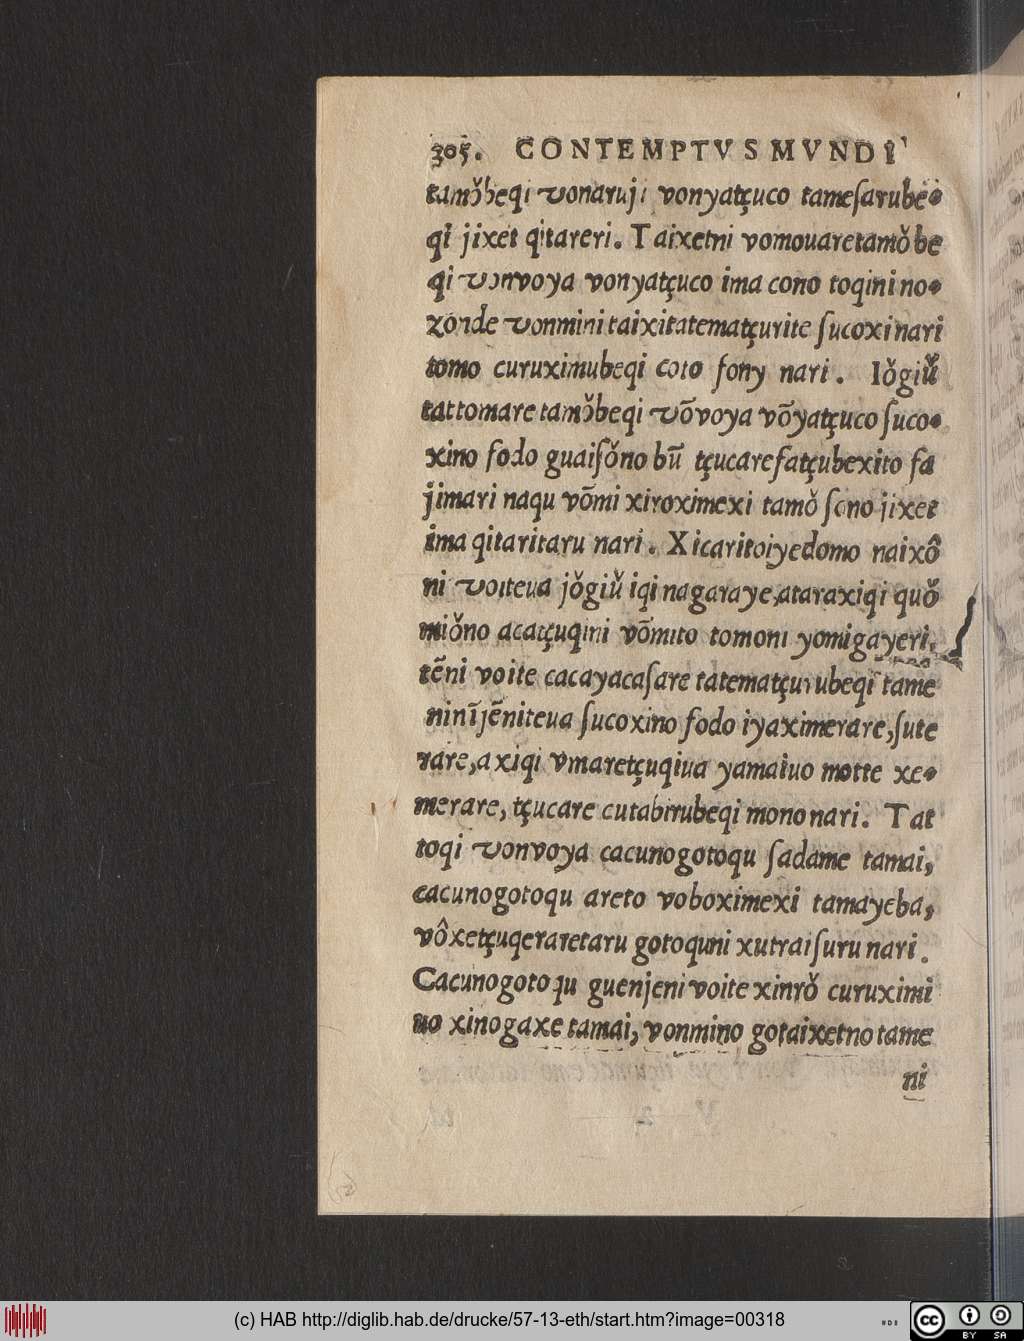 305. CONTEMPTVS MVNDI
tamǒbeqi vonaruji vonyatçuco tameſarube-
qi jixet qitareri. Taixetni vomouaretamǒbe
qi vonvoya vonyatçuco ima cono toqini no-
zonde vonmini taixitatematçurite ſucoxinari
tomo curuximubeqi coto fony nari. Iǒgiǔ
tattomare tamǒbeqi võvoya võyatçuco ſuco-
xino fodo guaiſǒno bũ tçucarefatçubexito fa
jimari naqu võmi xiroximexi tamǒ ſono jixet
ima qitaritaru nari. Xicaritoiyedomo naixô
ni voiteua jǒgiǔ iqi nagaraye, ataraxiqi quǒ
miǒno acatçuqini võmito tomoni yomigayeri,
tẽni voite cacayacaſare tatematçurubeqi tame
ninĩjẽniteua ſucoxino fodo iyaximerare, ſute
rare, axiqi vmaretçuqiua yamaiuo motte xe-
merare, tçucare cutabirubeqi mono nari. Tat
toqi vonvoya cacunogotoqu ſadame tamai,
cacunogotoqu areto voboximexi tamayeba,
vôxetçuqeraretaru gotoquni xutrai ſuru nari.
Cacunogotoqu guenjeni voite xinrǒ curuximi
uo xinogaxe tamai, vonmino gotaixetno tame
ni
(c) HAB http://diglib.hab.de/drucke/57-13-eth/start.htm?image=00318
cc BY SA